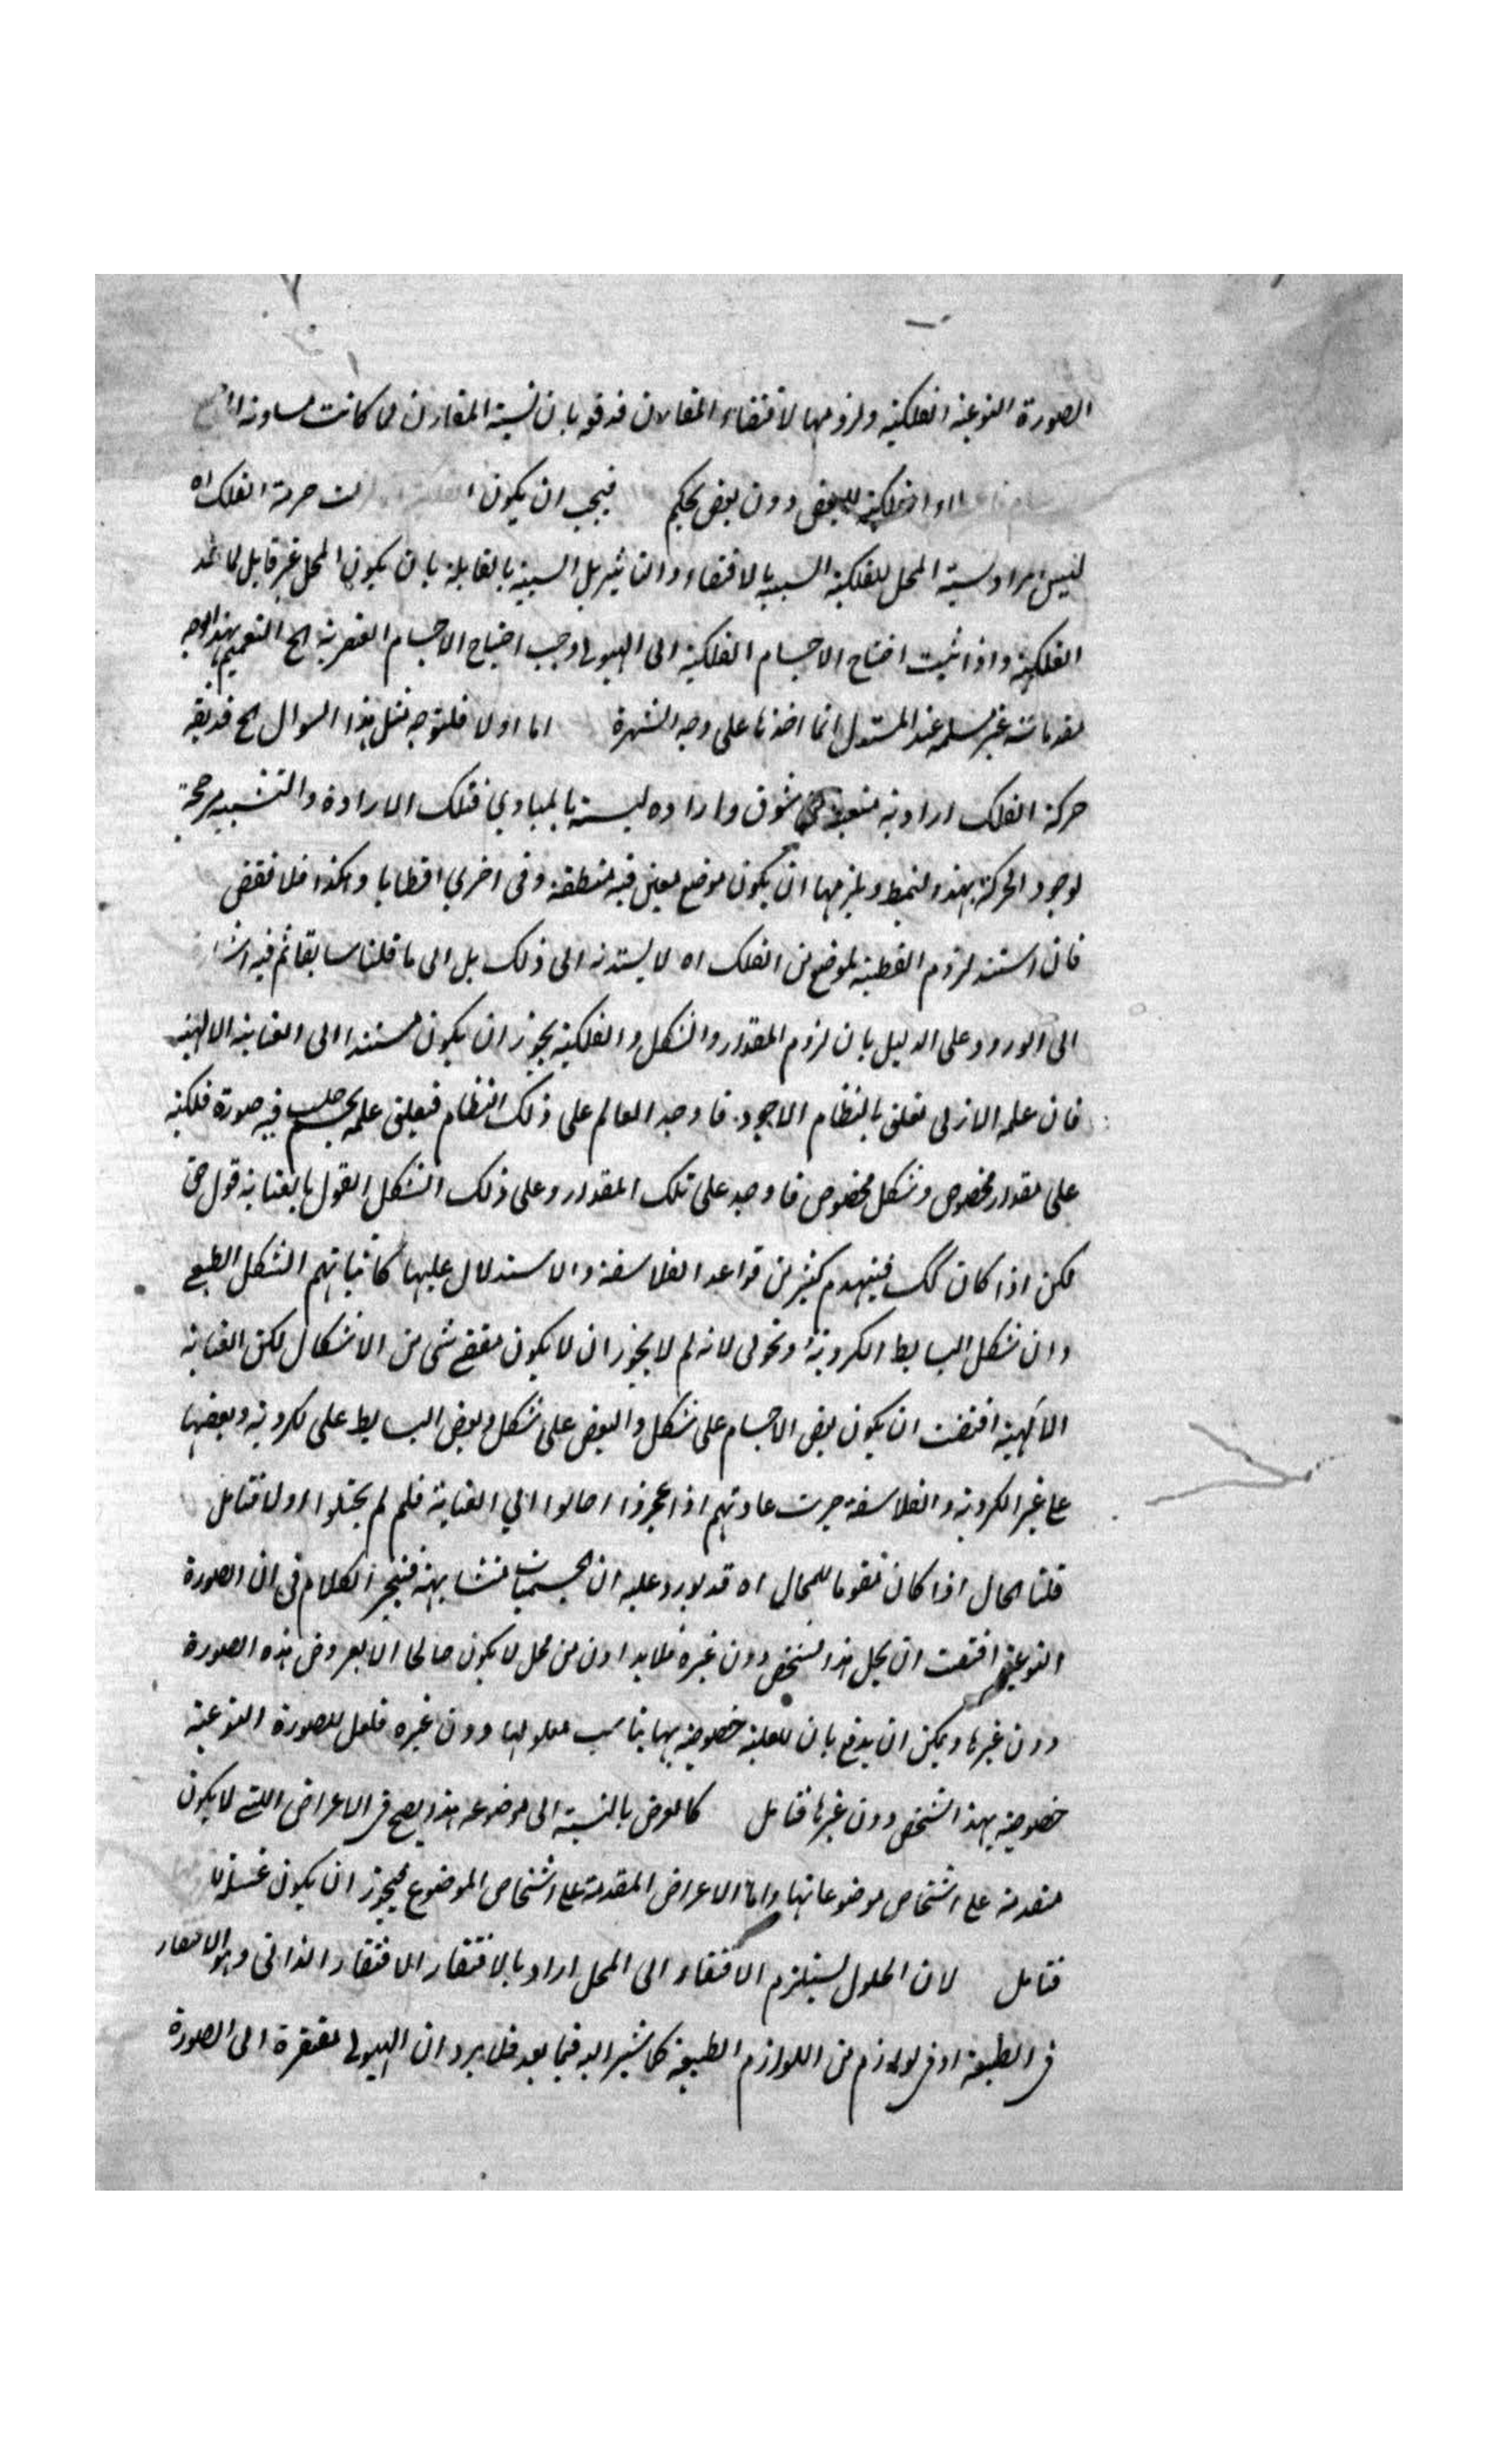 الصورة النوعية الفلكية ولزومها لاقتضاء المقارن فدفعه بان نسبة المقارن لما كانت مساوية
الفلكية للبعض دون بعض تحكم فيجب ان يكون حركة الفلك اه
ليس المراد بسببية المحل للفلكية السببية بالاقتضاء والتاثير بل السببية بالقابلية بان يكون المحل غير قابل لما عدا
الفلكية واذا ثبت احتياج الاجسام الفلكية الى الهيولى وجب احتياج الاجسام العنصرية الخ التعميم بهذا الوجه
مقدماته غير مسلمة عند المستدل انما اخذها على وجه الشهرة اما اولا فلتوجه مثل هذا السوال الخ
حركة الفلك ارادية منبعثة عن شوق وارادة بالمبادي فتلك الارادة والتشبيه مرجحة
لوجود الحركة بهذا النمط ويلزمها ان يكون موضع معين فيه منطقة وفى اخرى اقطابا وهكذا فلا نقض
فان استند لزوم القطبية لموضع من الفلك اه لا يستند الى ذلك بل الى ما قلنا سابقا ثم فيه اشارة
الى الورود على الدليل بان لزوم المقدار والشكل والفلكية يجوز ان يكون مستندا الى العناية الالهية
فان علمه الازلى تعلق بالنظام الاجود فاوجد العالم على ذلك النظام فتعلق علمه بجسم فيه صورة فلكية
على مقدار مخصوص وشكل مخصوص فاوجد على تلك المقدار وعلى ذلك الشكل القول بالعناية قول حق
لكن اذا كان كك فينهدم كثير من قواعد الفلاسفة والاستدلال عليها كاثباتهم الشكل الطبعى
وان شكل البسايط الكروية ونحو لانه لم لا يجوز ان لا يكون مقتضى شى من الاشكال لكن العناية
الالهية اقتضت ان يكون بعض الاجسام على شكل والبعض على شكل وبعض البسايط على كروية وبعضها
على غير الكروية والفلاسفة جرت عادتهم اذا عجزوا احالوا الى العناية فلم لم يحيلوا اولا فتامل
قلنا الحال اذا كان مقوما للمحال اه قد يورد عليه ان الجسميات متشابهة فينجر الكلام فى ان الصورة
النوعية اقتضت ان يحل هذا الشخص دون غيره فلا بد اذن من محل لا يكون صالحا الا بعروض هذه الصورة
دون غيرها ويمكن ان يدفع بان للعلة خصوصية بها يناسب معلولها دون غيره فلعل للصورة النوعية
خصوصية بهذا الشخص دون غيرها فتامل كالعرض بالنسبة الى موضوعه هذا يصح فى الاعراض التى لا يكون
متقدمة على اشخاص موضوعاتها واما الاعراض المقدمة على اشخاص الموضوع فيجوز ان يكون
فتامل لان الحلول يستلزم الافتقار الى المحل اراد بالافتقار الافتقار الذاتى وهو الافتقار
فى الطبيعة او فى لوازم من اللوازم الطبيعة كما نشير اليه فيما بعد فلا يرد ان الهيولى مفتقرة الى الصورة